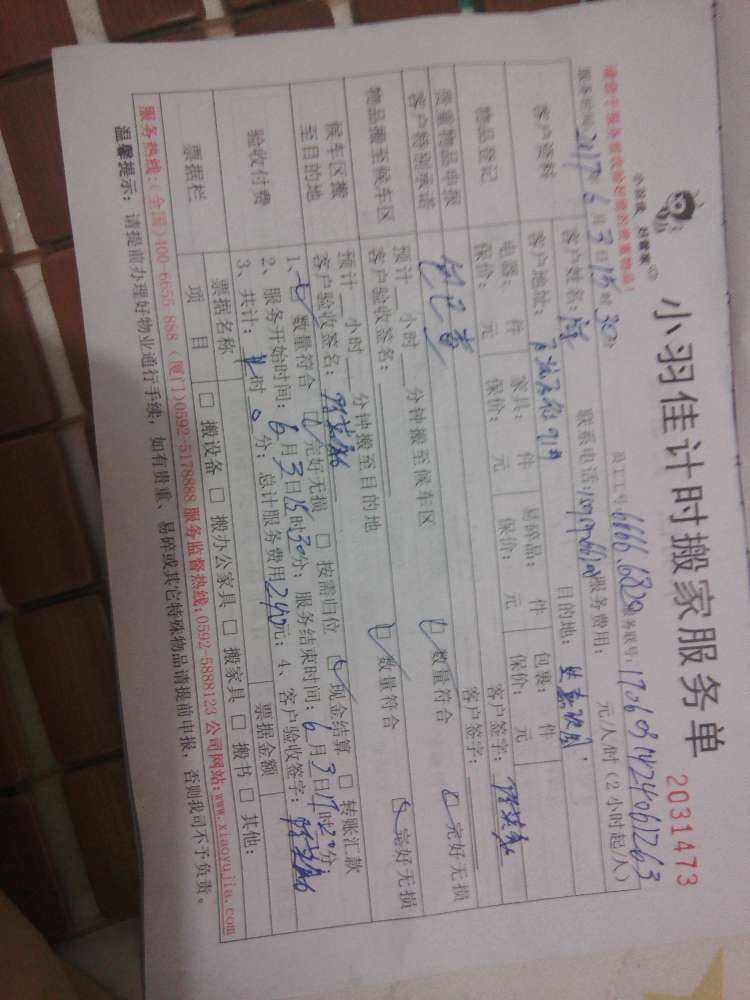 小羽佳 好管家
小羽佳计时搬家服务单
2031473
请您于服务前收拾好您的贵重物品!
员工工号 6866.6820 服务联号: 1706031424061263
服务时间: 2017年6月3日15时30分
服务费用: 元/人时(2小时起/人)
客户资料
客户姓名: 联系电话:
客户地址: 目的地:
物品登记
电器: 件 家具: 件 易碎品: 件 包裹: 件
保价: 元 保价: 元 保价: 元 保价: 元
贵重物品申报
客户签字:
客户特别承诺
客户签字:
物品搬至候车区
预计 小时 分钟搬至候车区 数量符合 完好无损
客户验收签名:
候车区搬至目的地
预计 小时 分钟搬至目的地 数量符合 完好无损
客户验收签名:
验收付费
1、数量符合 完好无损 □ 按需归位 现金结算 □ 转账汇款
2、服务开始时间: 6月3日15时30分; 服务结束时间: 6月3日17时20分
3、共计: 时0分; 总计服务费用240元; 4、客户验收签字:
票据栏
票据名称 票据金额
项目 □ 搬设备 □ 搬办公家具 □ 搬家具 □ 搬书 □ 其他:
服务热线:(全国)400-6655 888 (厦门)0592-5178888 服务监督热线:0592-5888123 公司网站:www.xiaoyujia.com
温馨提示: 请提前办理好物业通行手续, 如有贵重、易碎或其它特殊物品请提前申报, 否则我司不予负责。